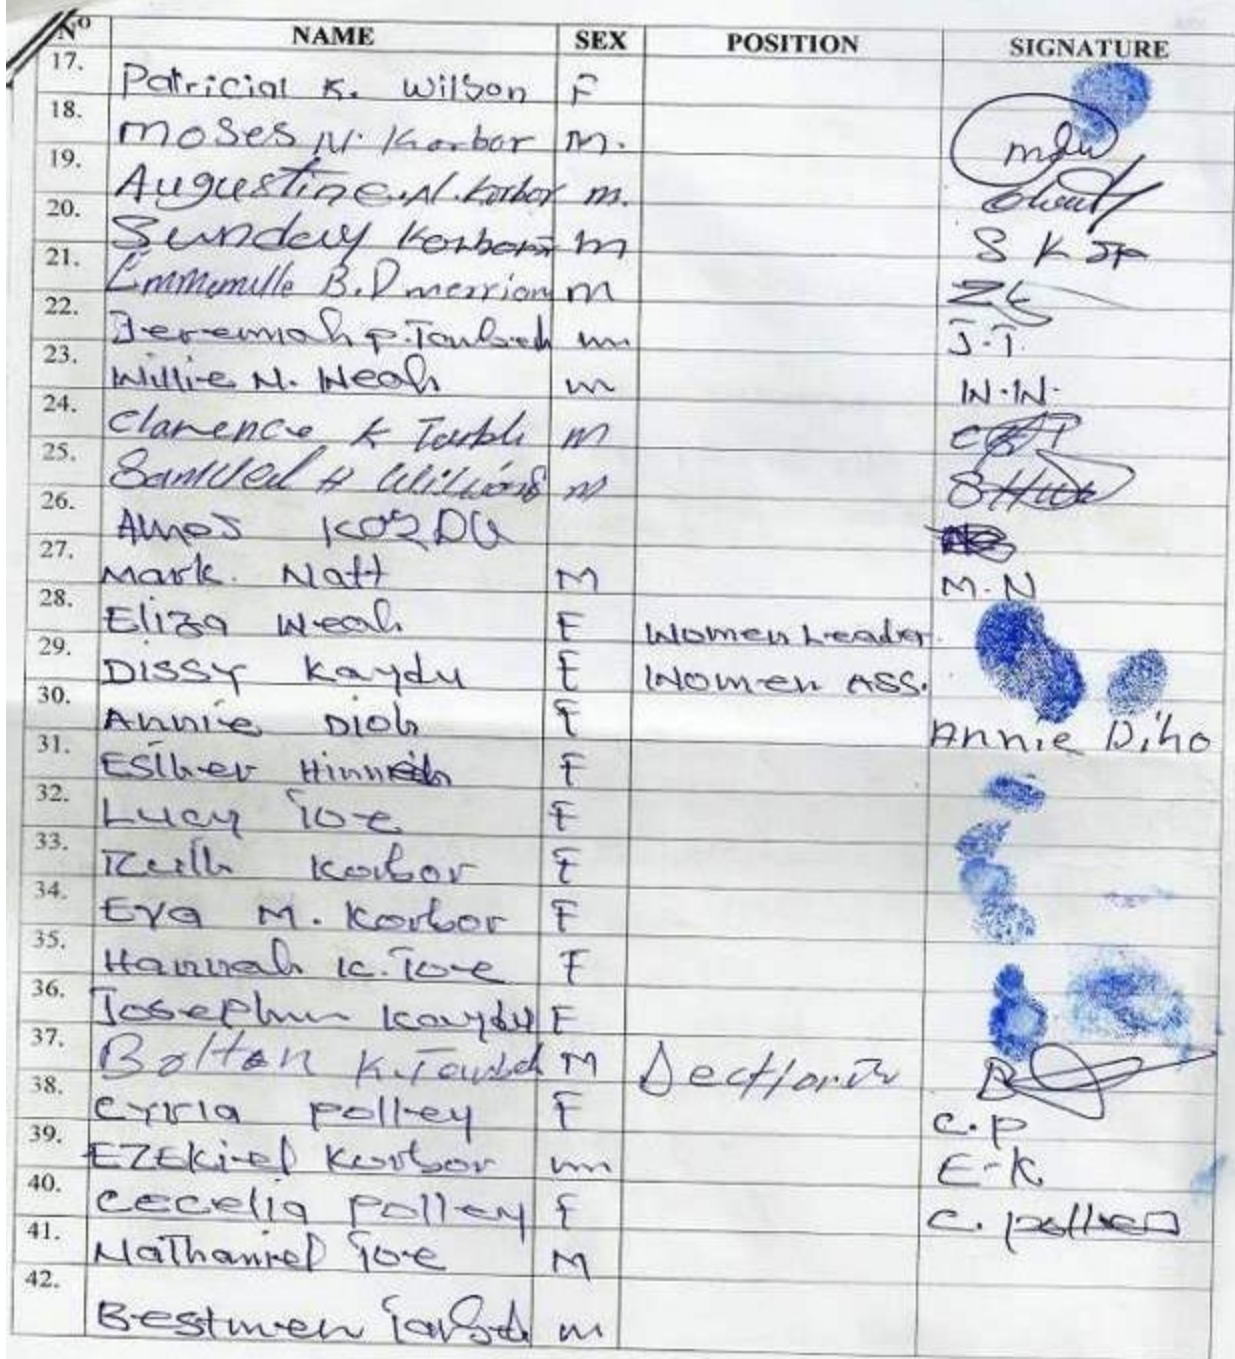 Nº NAME SEX POSITION SIGNATURE
17. Patricial K. Wilson F
18. Moses N. Korbor M.
19. Augustine.N.Korbor m.
20. Sunday Korbor m S K JR
21. B.D merriam m
22. Jeremiah p. m J.T.
23. Willie N. Weah m W.W.
24. Clarence K m
25. Samuel H Williams m
26. Amos
27. Mark. Natt M M.N
28. Eliza Weah F Women Leader
29. Dissy Kaydu F Women ASS.
30. Annie Dioh F Annie Diho
31. Esther F
32. Lucy Toe F
33. Ruth Korbor F
34. Eva M. Korbor F
35. Hannah K. Toe F
36. Kaydu F
37. Bolton K. M
38. Cyria polley F C.P
39. EZEKiel Korbor m E-K
40. Cecelia Polley F C.
41. Nathaniel Toe M
42. Bestmen m